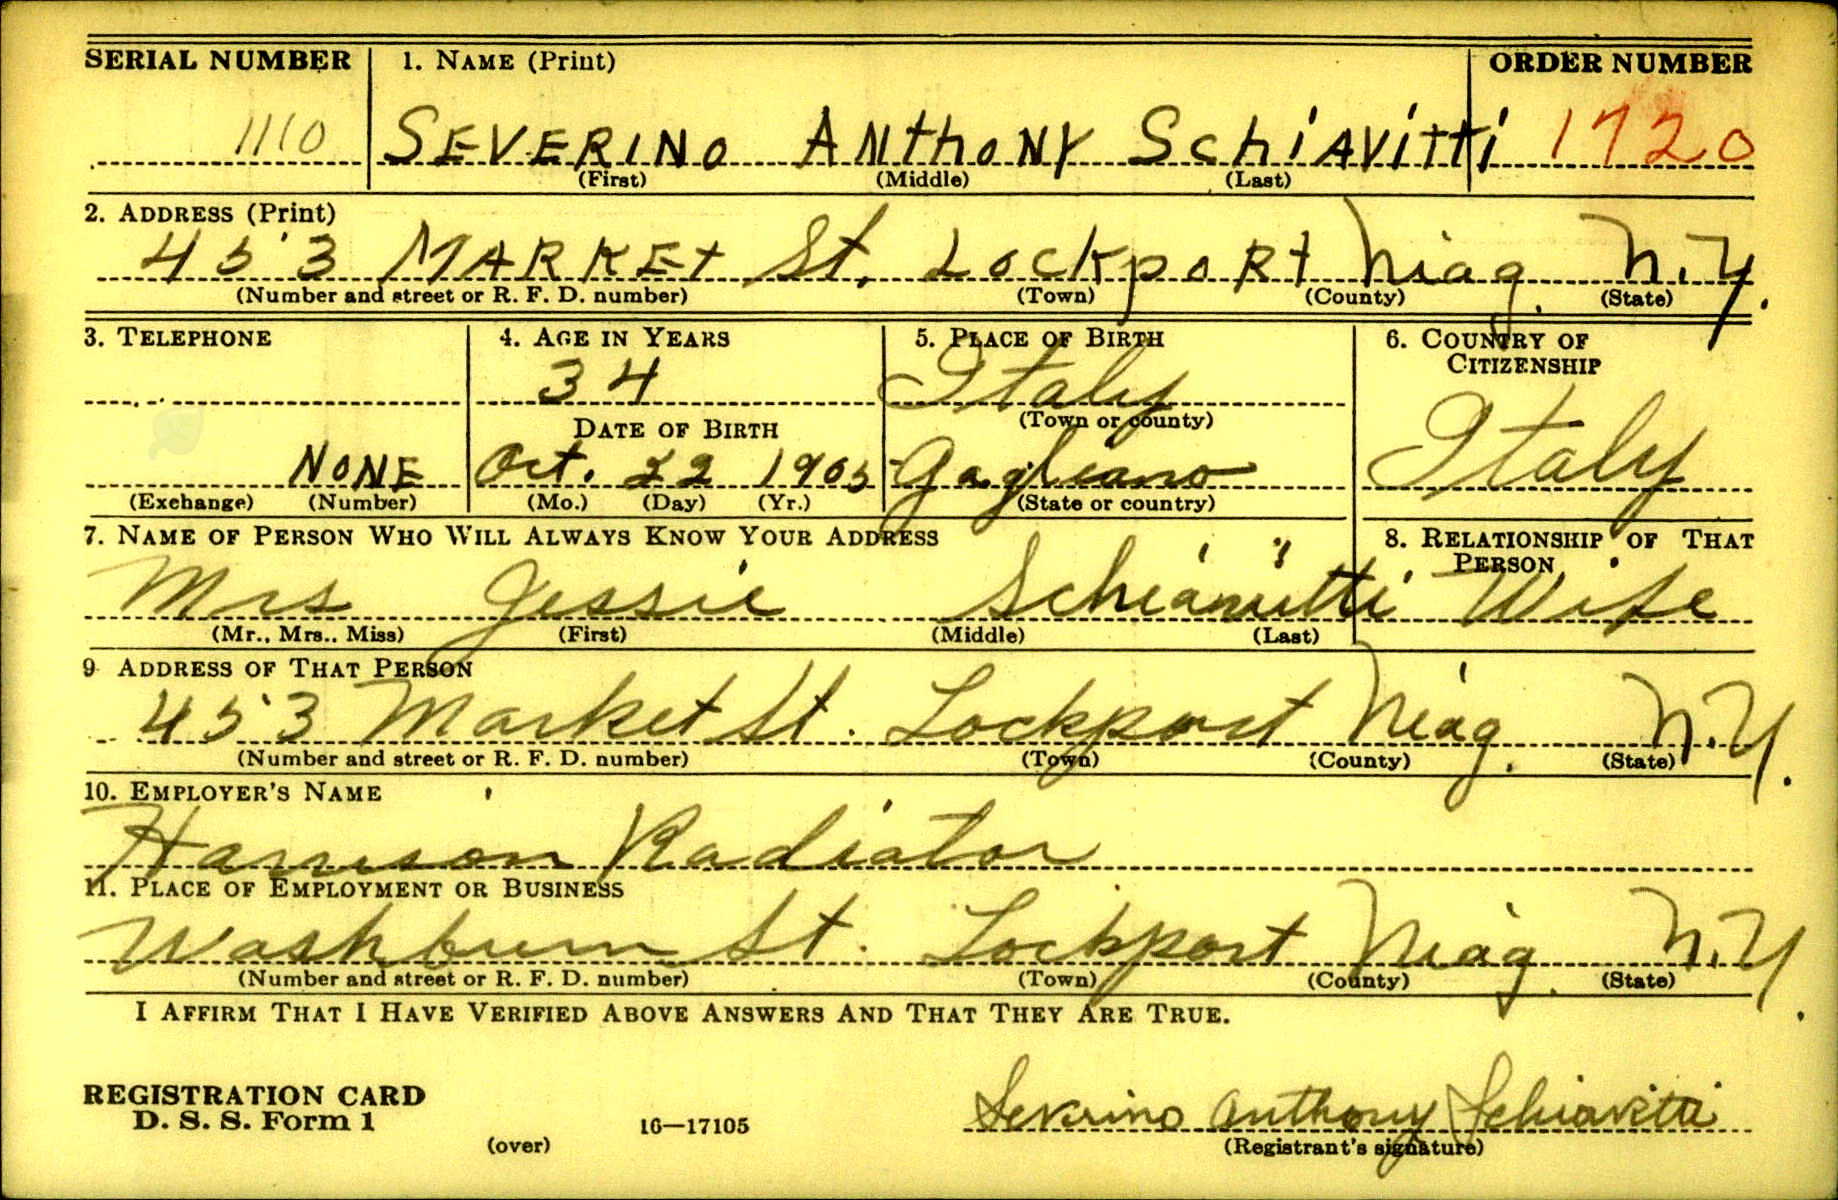 SERIAL NUMBER 1. NAME (Print) ORDER NUMBER
1110 SEVERINO ANthoNY SchiAVitti 1720
(First) (Middle) (Last)
2. ADDRESS (Print)
453 MARKEt St. LockpoRt Niag. N.Y.
(Number and street or R. F. D. number) (Town) (County) (State)
3. TELEPHONE 4. AGE IN YEARS 5. PLACE OF BIRTH 6. COUNTRY OF CITIZENSHIP
34 Italy
DATE OF BIRTH (Town or county) Italy
NONE Oct. 22 1905 Gagliano
(Exchange) (Number) (Mo.) (Day) (Yr.) (State or country)
7. NAME OF PERSON WHO WILL ALWAYS KNOW YOUR ADDRESS 8. RELATIONSHIP OF THAT PERSON
Mrs Jessie Schiavitti Wife
(Mr., Mrs., Miss) (First) (Middle) (Last)
9 ADDRESS OF THAT PERSON
453 Market St. Lockport Niag. N.Y.
(Number and street or R. F. D. number) (Town) (County) (State)
10. EMPLOYER'S NAME
Harrison Radiator
11. PLACE OF EMPLOYMENT OR BUSINESS
Washburn St. Lockport Niag. N.Y.
(Number and street or R. F. D. number) (Town) (County) (State)
I AFFIRM THAT I HAVE VERIFIED ABOVE ANSWERS AND THAT THEY ARE TRUE.
REGISTRATION CARD
D. S. S. Form 1 16—17105 Severino Anthony Schiavitti
(over) (Registrant's signature)